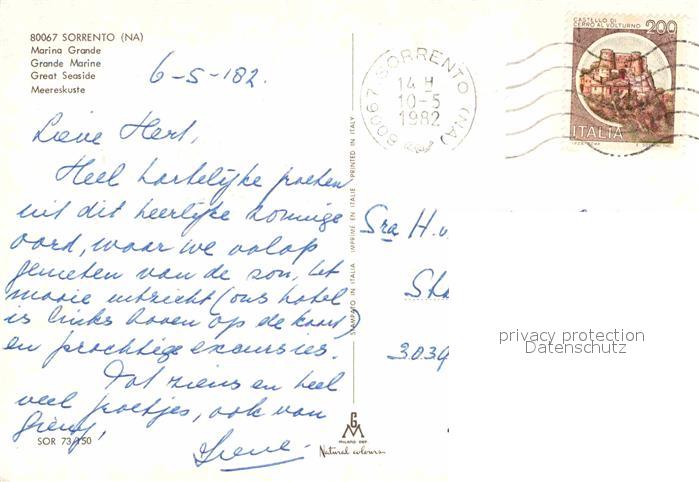 80067 SORRENTO (NA)
Marina Grande
Grande Marine
Great Seaside
Meereskuste
6-5-'82.
Lieve Hert,
Heel hartelijke groeten
uit dit heerlijke zonnige
oord, waar we volop
genieten van de zon, het
mooie uitzicht (ons hotel
is links boven op de kaart)
en prachtige excursies.
Tot ziens en heel
veel groetjes, ook van
Irene
SOR 73/150
STAMPATO IN ITALIA IMPRIMÉ EN ITALIE PRINTED IN ITALY
GM
MILANO DEP.
Natural colours
80067 SORRENTO (NA)
14 H
10-5
1982
CASTELLO DI
CERRO AL VOLTURNO
200
ITALIA
Sra H. v
St
3034
privacy protection
Datenschutz